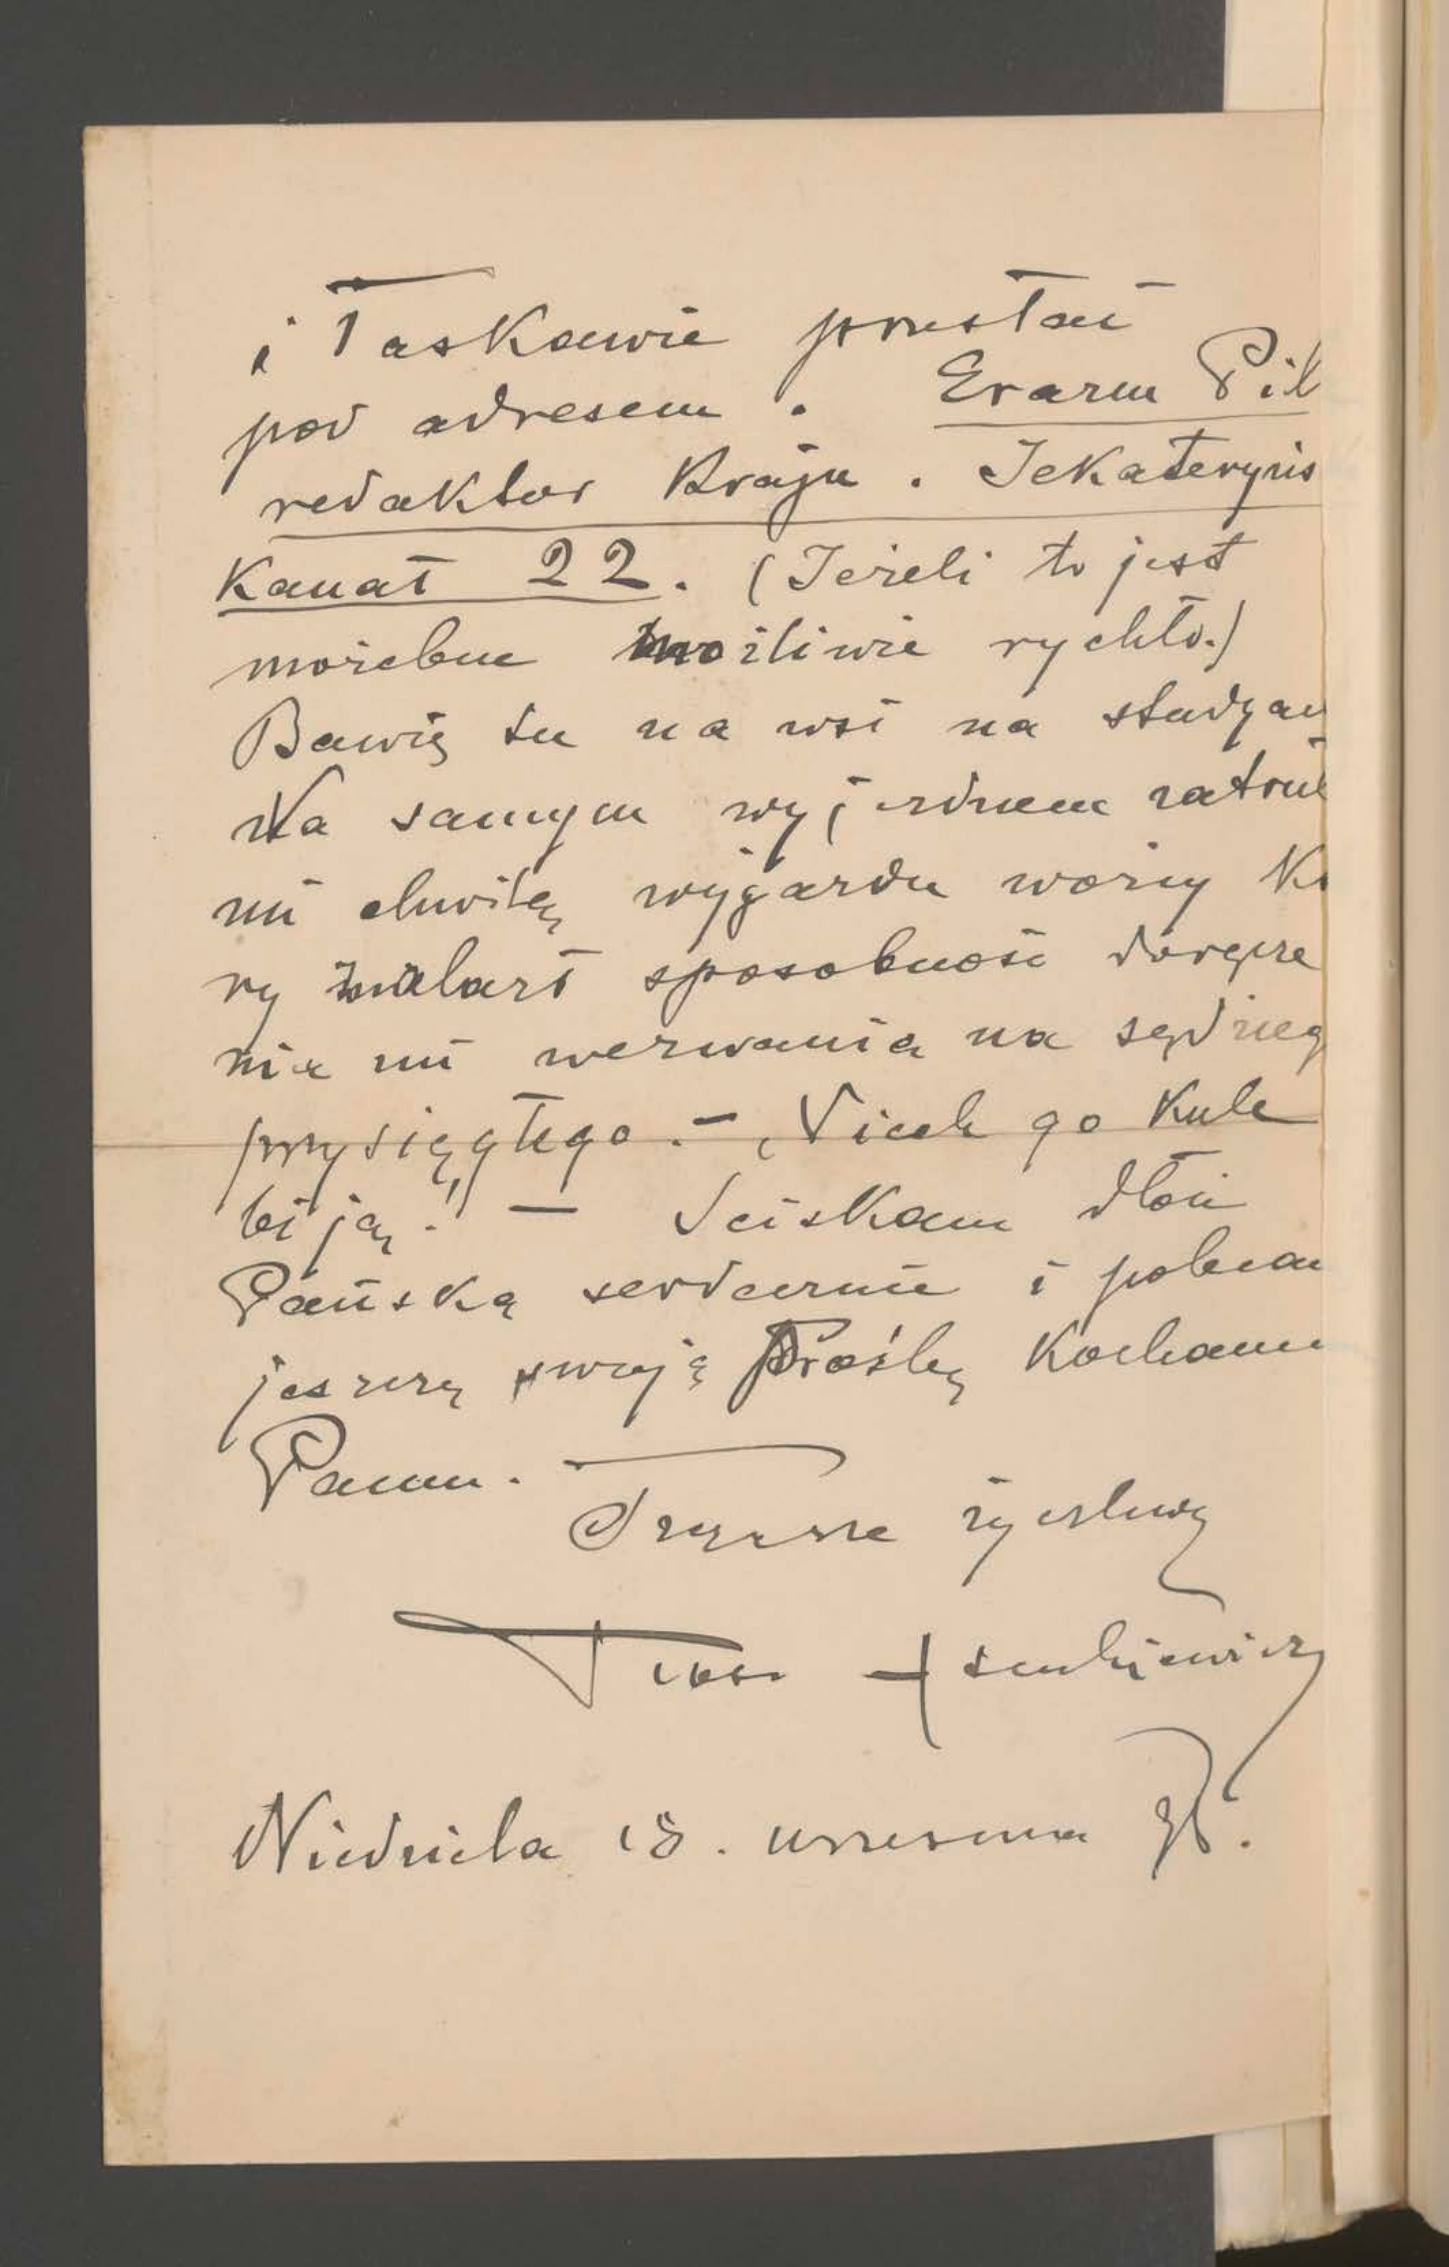 i łaskawie przesłać
pod adresem. Erazm Pil
redaktor Kraju. Jekateryns
Kanał 22. (Jeżeli to jest
możebne możliwie rychło.)
Bawię tu na wsi na studyach
Na samym wyjezdnem zatruł
mi chwilę wyjazdu woźny Któ
ry znalazł sposobność doręcze
nia mi wezwania na sędzieg
przysięgłego. – „Niech go Kule
biją." – Ściskam dłoń
Pańską serdecznie i polecam
jeszcze swoją Prośbę Kochanemu
Panu.
Szczerze życzliwy
Niedziela 18. września